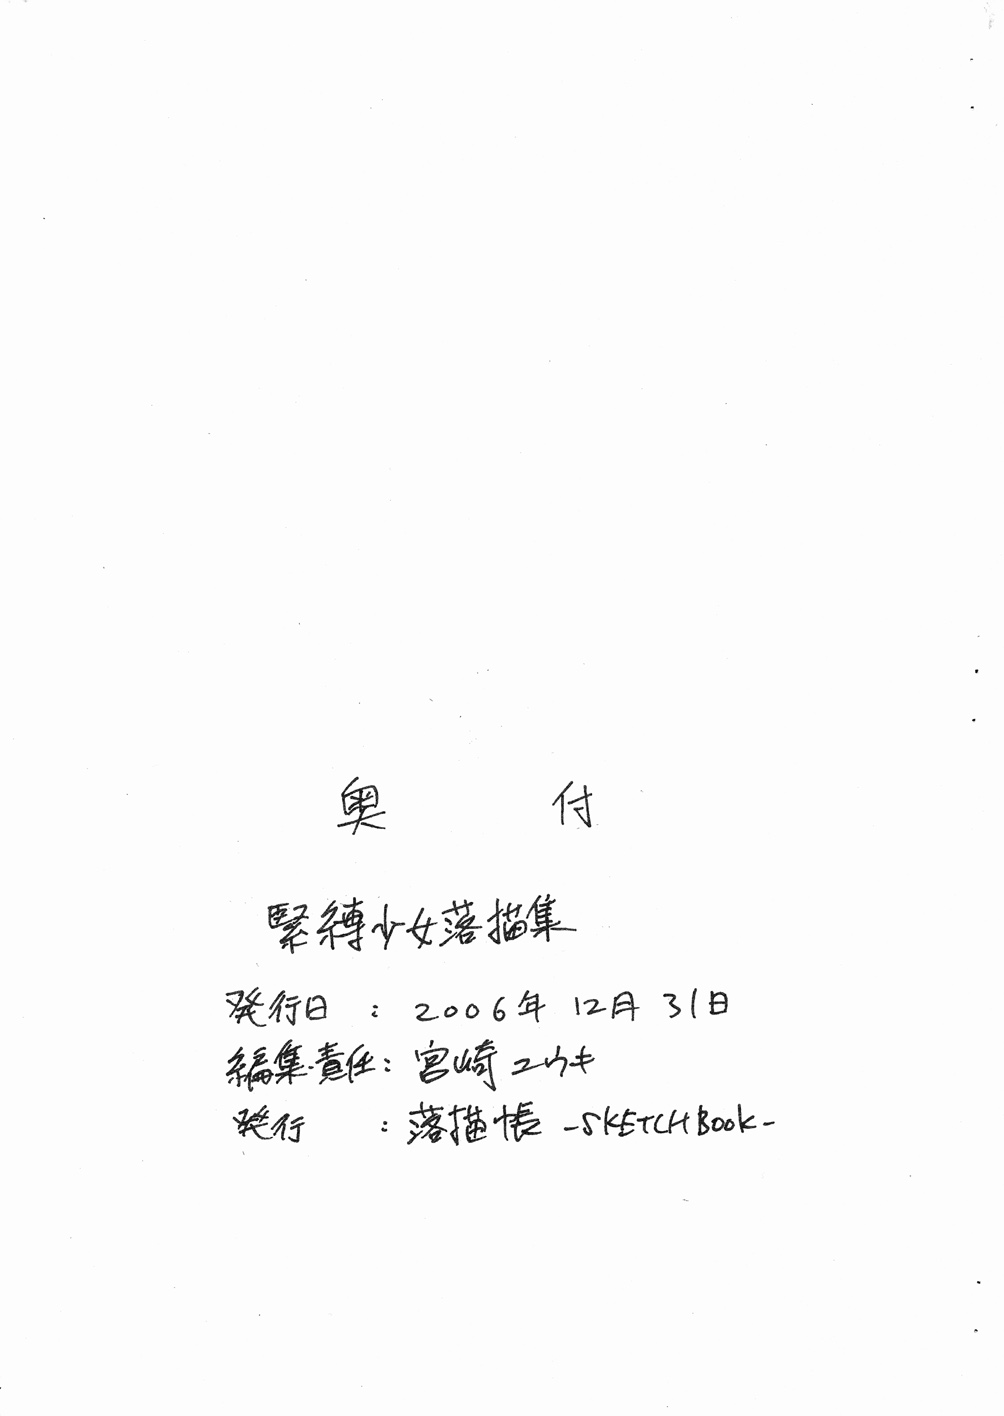 奥 付
緊縛少女落描集
発行日 : 2006年 12月 31日
編集・責任 : 宮崎ユウキ
発行 : 落描帳 -SKETCHBOOK-